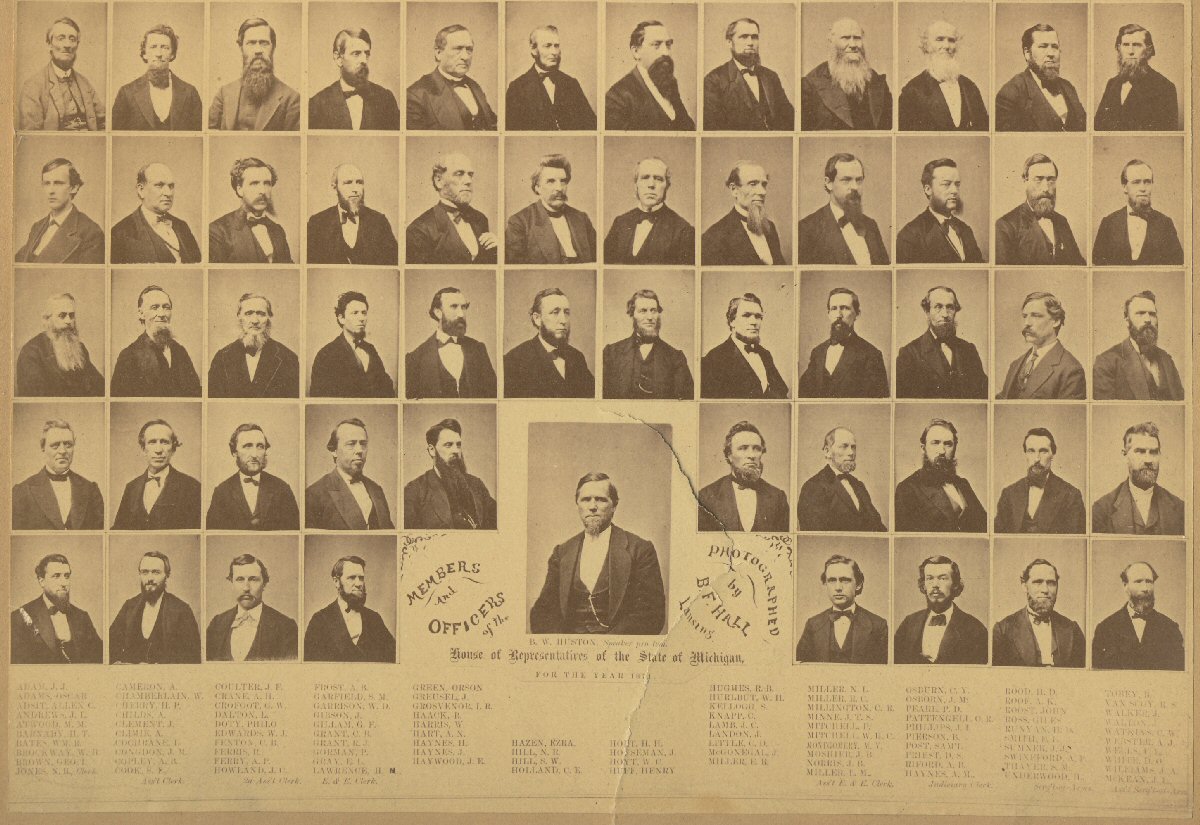 MEMBERS
And
OFFICERS
of the
PHOTOGRAPHED
by
B.F. HALL
Lansing
B. W. HUSTON, Speaker pro tem.
House of Representatives of the State of Michigan,
FOR THE YEAR
ADAM, J. J.
ADAMS, OSCAR
ADSIT, ALLEN C.
ANDREWS, J. L.
ATWOOD, M. M.
BARNABY, H. T.
BATES, WM. R.
BROCKWAY, W. H.
BROWN, GEO. L.
JONES, N. B., Clerk.
CAMERON, A.
CHAMBERLAIN, W.
CHERRY, H. P.
CHILDS, A.
CLEMENT, J.
CLIMIE, A.
COCHRANE, L.
CONGDON, J. M.
COPLEY, A. B.
COOK, S. F.,
Ass't Clerk.
COULTER, J. F.
CRANE, A. H.
CROFOOT, G. W.
DALTON, L.
DOTY, PHILO
EDWARDS, W. J.
FENTON, C. B.
FERRIS, B.
FERRY, A. P.
HOWLAND, J. C.
2n Ass't Clerk.
FROST, A. B.
GARFIELD, S. M.
GARRISON, W. D.
GIBSON, J.
GILLAM, G. F.
GRANT, C. B.
GRANT, R. J.
GORMAN, P.
GRAY, E. L.
LAWRENCE, H. N.
E. & E. Clerk.
GREEN, ORSON
GREUSEL, J.
GROSVENOR, I. R.
HAACK, R.
HARRIS, W.
HART, A. N.
HAYNES, H.
HAYNES, J.
HAYWOOD, J. E.
HAZEN, EZRA,
HILL, N. R.
HILL, S. W.
HOLLAND, C. E.
HOUT, H. H.
HOUSEMAN, J.
HOYT, W. C.
HUFF, HENRY
HUGHES, R. B.
HURLBUT, W. H.
KELLOGG, S.
KNAPP, C.
LAMB, J. C.
LANDON, J.
LITTLE, C. D.
McGONEGAL, J.
MILLER, E. R.
MILLER, N. I.
MILLER, R. C.
MILLINGTON, C. R.
MINNE, J. T. S.
MITCHELL, J.
MITCHELL, W. H. C.
MONTGOMERY, W. V.
MOSHER, J. B.
NORRIS, J. B.
MILLER, L. M.
Ass't E. & E. Clerk.
OSBURN, C. Y.
OSBORN, J. M.
PEARL, P. D.
PATTENGELL, C. R.
PHILLIPS, J. I.
PIERSON, B.
POST, SAM'L
PRIEST, D. S.
RIFORD, A. B.
HAYNES, A. M.,
Judiciary Clerk.
ROOD, H. D.
ROOF, A. K.
ROOST, JOHN
ROSS, GILES
RUNYAN, H. D.
SMITH, E. L.
SUMNER, J. H.
SWIFFORD, A. P.
THAYER, S. M.
UNDERWOOD, H.
Serg't-at-Arms.
TORREY, B.
VAN SCOY, B. S.
WALKER, J.
WALTON, J.
WATKINS, C. W.
WELLS, F. L.
WHITE, D. O.
WILLIAMS, J. A.
McKEAN, J. L.
Ass't Serg't-at-Arms